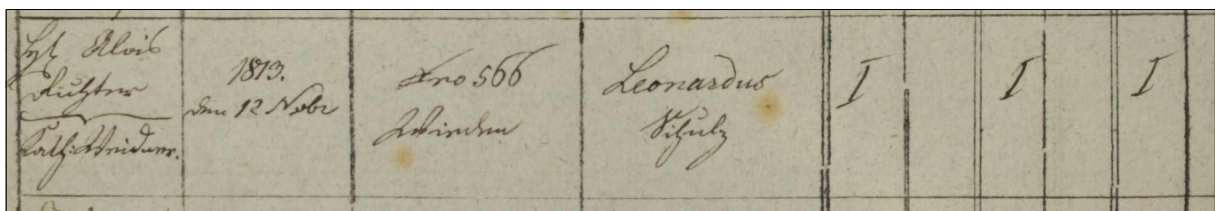 Alois
Richter
Kath: Weidner.
1813.
den 12 Nobr
Nro 566
Wieden
Leonardus
Schulz
I
I
I